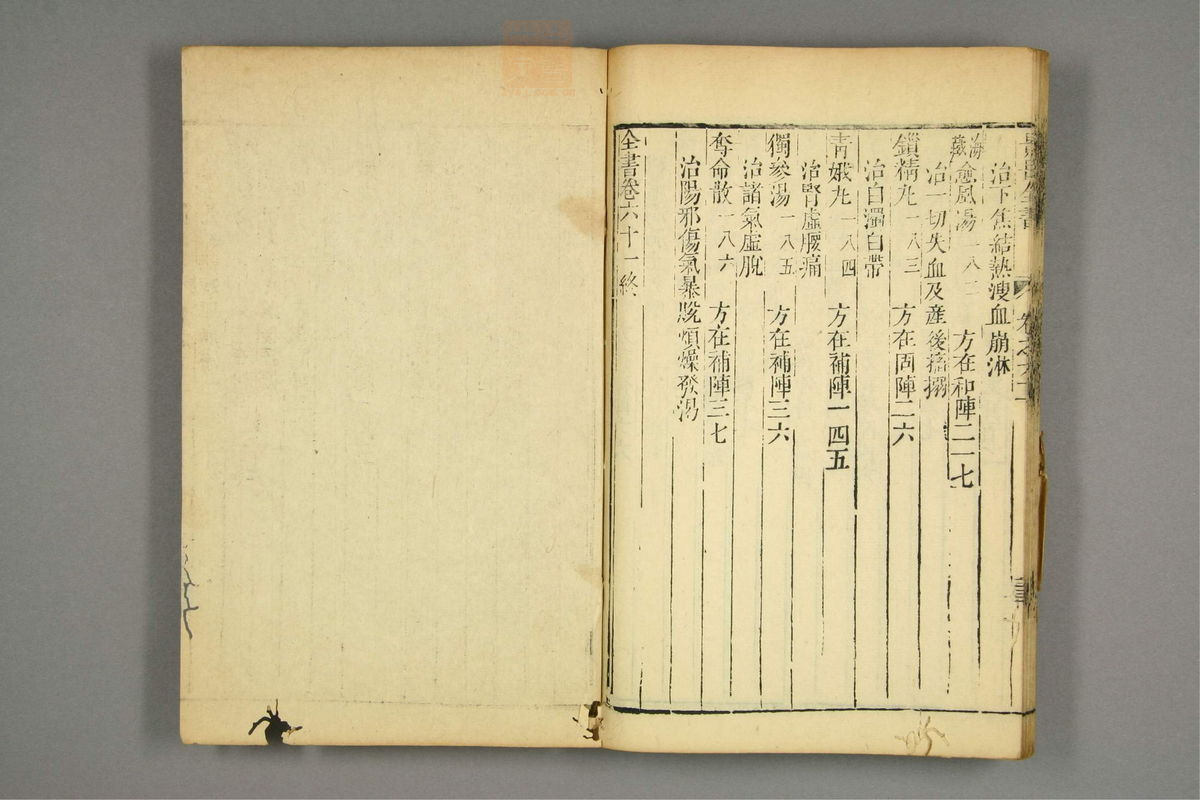 景岳全書 卷之六十一
治下焦結熱溲血崩淋
海藏愈風湯一八二 方在和陣二一七
治一切失血及産後搐搦
鎖精丸一八三 方在固陣二六
治白濁白帶
青娥丸一八四 方在補陣一四五
治腎虛腰痛
獨參湯一八五 方在補陣三六
治諸氣虛脫
奪命散一八六 方在補陣三七
治陽邪傷氣暴脫煩燥發渴
全書卷六十一終